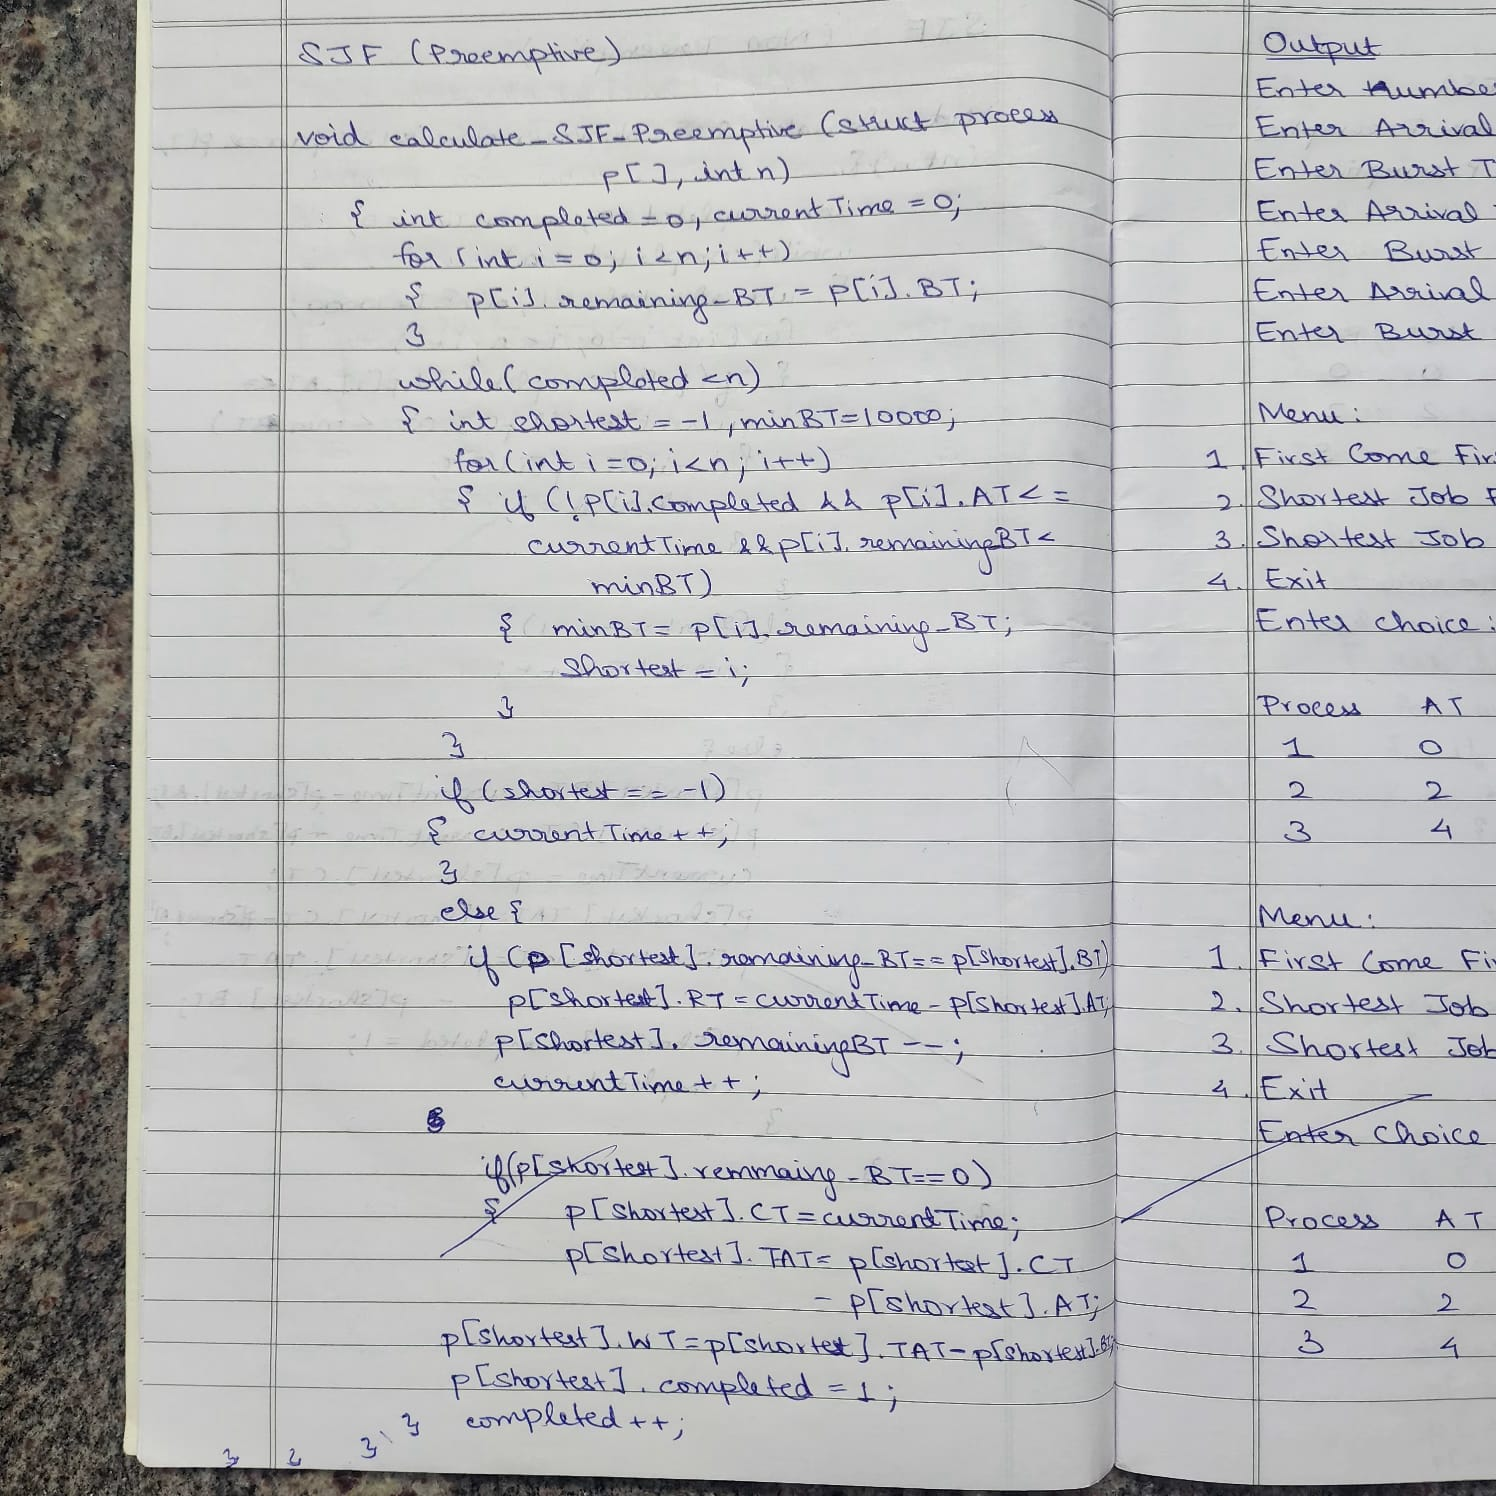 SJF (Preemptive)
void calculate_SJF_Preemptive (struct process
p[], int n)
{ int completed = 0, currentTime = 0;
for (int i = 0; i < n; i++)
{ p[i]. remaining_BT = p[i]. BT;
}
while (completed < n)
{ int shortest = -1, minBT=10000;
for (int i = 0; i < n; i++)
{ if (!p[i].completed && p[i].AT <=
currentTime && p[i]. remainingBT <
minBT)
{ minBT = p[i]. remaining_BT;
Shortest = i;
}
}
if (shortest == -1)
{ currentTime ++;
}
else {
if (p[shortest]. remaining_BT == p[shortest].BT)
p[shortest]. RT = currentTime - p[shortest].AT;
p[shortest]. remainingBT --;
currentTime ++;
if(p[shortest]. remmaing_BT==0)
{ p[shortest]. CT = currentTime;
p[shortest]. TAT = p[shortest]. CT
- p[shortest]. AT;
p[shortest]. WT = p[shortest]. TAT - p[shortest].BT;
p[shortest]. completed = 1;
} completed ++;
} } }
Output
Enter Numbe
Enter Arrival
Enter Burst T
Enter Arrival
Enter Burst
Enter Arrival
Enter Burst
Menu :
1. First Come Fir
2. Shortest Job F
3. Shortest Job
4. Exit
Enter choice :
Process AT
1 0
2 2
3 4
Menu :
1. First Come Fi
2. Shortest Job
3. Shortest Job
4. Exit
Enter Choice
Process AT
1 0
2 2
3 4